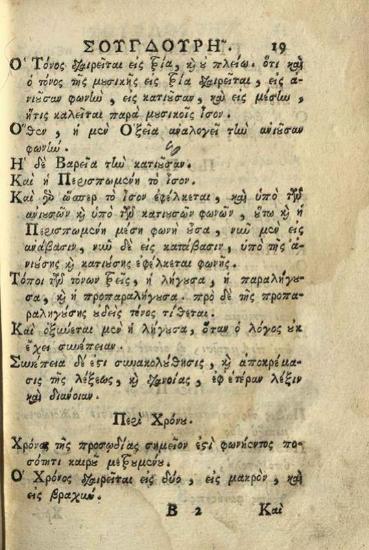 ΣΟΥΓΔΟΥΡΗ͂. 19
Ὁ Τόνος διαιρεῖται εἰς τρία, καὶ οὐ πλείω. ὅτι καὶ
ὁ τόνος τῆς μυσικῆς εἰς τρία διαιρεῖται, εἰς ἀ-
νιοῦσαν φωνὴν, εἰς κατιοῦσαν, καὶ εἰς μέσην,
ἥτις καλεῖται παρὰ μυσικοῖς Ἴσον.
Ὅθεν, ἡ μὲν Ὀξεῖα ἀναλογεῖ τὴν ἀνιοῦσαν
φωνήν.
Ἡ δὲ Βαρεῖα τὴν κατιοῦσαν.
Καὶ ἡ Περισπωμένη τὸ ἴσον.
Καὶ γὸ ὥσπερ τὸ ἴσον ἐφέλκεται, καὶ ὑπὸ τῶν
ἀνιουσῶν καὶ ὑπὸ τῶν κατιουσῶν φωνῶν, οὕτω καὶ ἡ
Περισπωμένη μέση φωνὴ οὖσα, νῦν μὲν εἰς
ἀνάβασιν, νῦν δὲ εἰς κατάβασιν, ὑπὸ τῆς ἀ-
νιούσης καὶ κατιούσης ἐφέλκεται φωνῆς.
Τόποι τῶν τόνων τρεῖς, ἡ λήγουσα, ἡ παραλήγου-
σα, καὶ ἡ προπαραλήγουσα. πρὸ δὲ τῆς προπα-
ραληγούσης οὐδεὶς τόνος τίθεται.
Καὶ ὀξύνεται μὲν ἡ λήγουσα, ὅταν ὁ λόγος οὐκ
ἔχει συνέπειαν.
Συνέπεια δέ ἐστι συνακολούθησις, καὶ ἀποκρέμα-
σις τῆς λέξεως, καὶ διανοίας, ἐφ' ἑτέραν λέξιν
καὶ διάνοιαν.
Περὶ Χρόνου.
Χρόνος τῆς προσῳδίας σημεῖον ἐστὶ φωνήεντος πο-
σότητι καιροῦ μετρουμένου.
Ὁ Χρόνος διαιρεῖται εἰς δύο, εἰς μακρὸν, καὶ
εἰς βραχύν.
B 2 Καὶ